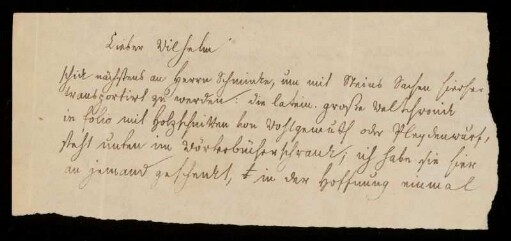 Lieber Wilhelm
schick nächstens an Herrn Schminke, um mit Steins Sachen hierher
transportirt zu werden: die latein. große Weltchronik
in folio mit Holzschnitten von Wohlgemuth oder Pleydenwurf,
steht unten im Wörterbücherschrank; ich habe sie hier
an jemand geschenkt, in der Hoffnung einmal